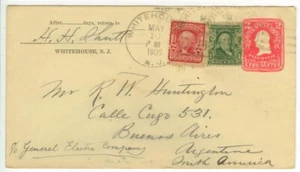 After........days, return to
H. H. Dautt
WHITEHOUSE, N. J.
WHITEHOUSE
MAY
P M
N. J.
Mr R. W. Huntington
Calle Cuyo 531.
Buenos Aires
Argentine
South America
% General Electric Company